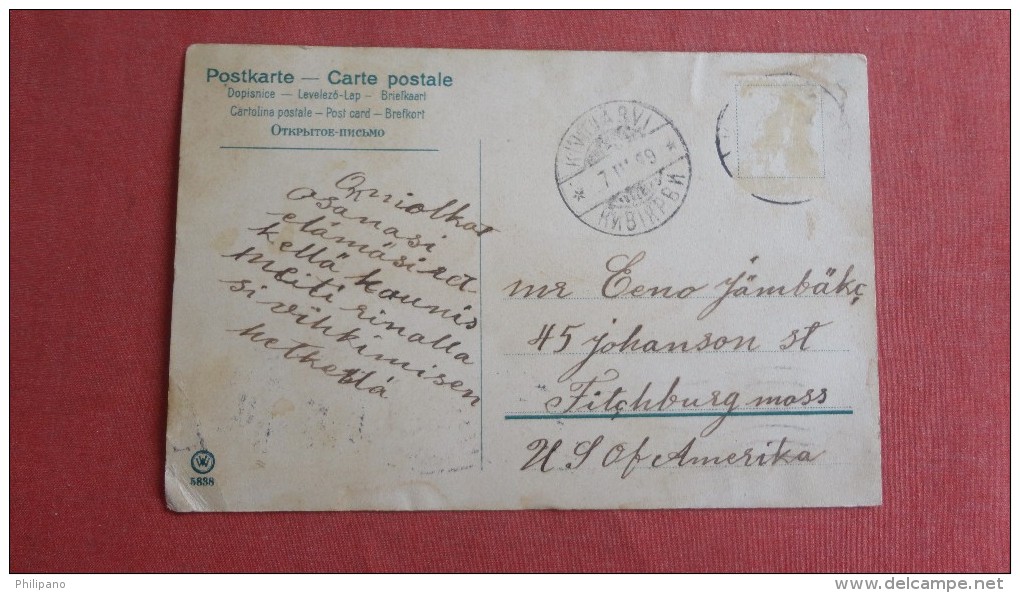 Postkarte — Carte postale
Dopisnice — Levelező-Lap — Briefkaart
Cartolina postale — Post card — Brefkort
Открытое-письмо
7
КИВІЯРВИ
Onniolkat
osanasi
elämäsi ret
kellä kaunis
neiti rinalla
si vihkimisen
hetkellä
mr Eeno Jämbäk
45 johanson st
Fitchburg mass
U S Of Amerika
W
5838
Philipano
www.delcampe.net